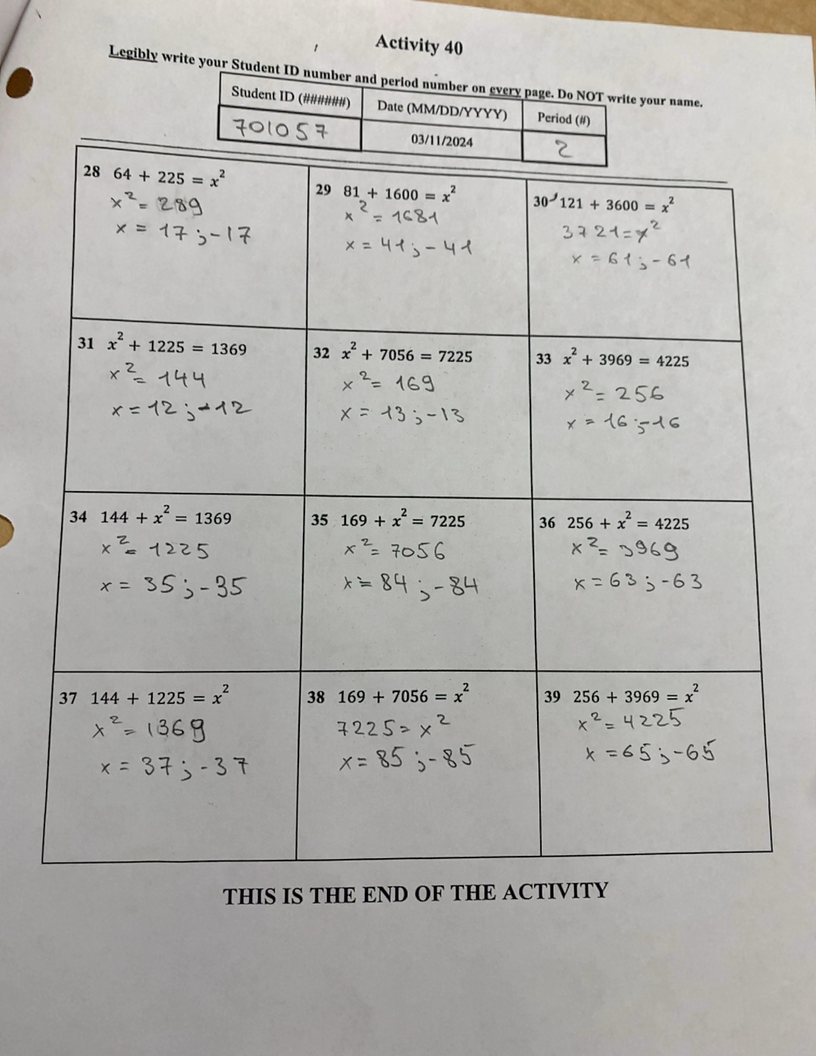 Activity 40
Legibly write your Student ID number and period number on every page. Do NOT write your name.
Student ID (######) Date (MM/DD/YYYY) Period (#)
701057 03/11/2024 2
28 64 + 225 = x²
x² = 289
x = 17 ; -17
29 81 + 1600 = x²
x² = 1681
x = 41 ; -41
30 121 + 3600 = x²
3721 = x²
x = 61 ; -61
31 x² + 1225 = 1369
x² = 144
x = 12 ; -12
32 x² + 7056 = 7225
x² = 169
x = 13 ; -13
33 x² + 3969 = 4225
x² = 256
x = 16 ; -16
34 144 + x² = 1369
x² = 1225
x = 35 ; -35
35 169 + x² = 7225
x² = 7056
x = 84 ; -84
36 256 + x² = 4225
x² = 3969
x = 63 ; -63
37 144 + 1225 = x²
x² = 1369
x = 37 ; -37
38 169 + 7056 = x²
7225 = x²
x = 85 ; -85
39 256 + 3969 = x²
x² = 4225
x = 65 ; -65
THIS IS THE END OF THE ACTIVITY